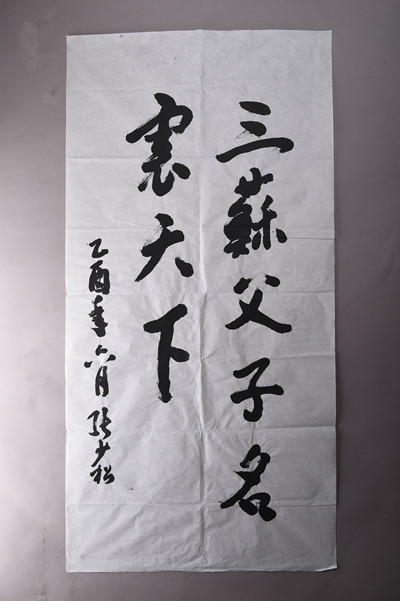 三蘇父子名
震天下
乙酉年六月張少松